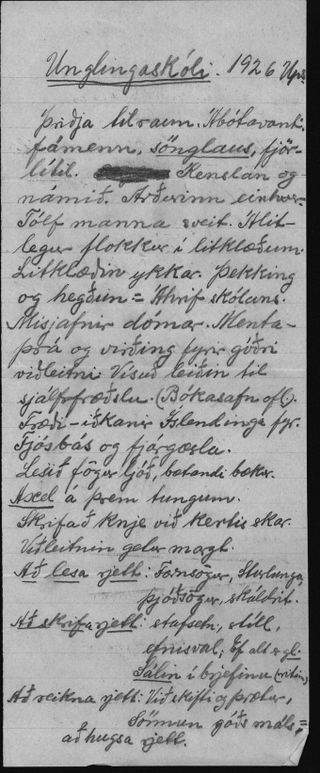 Unglingaskóli. 1926 Ups.
Þriðja tilraun. Ábótavant:
fámenn, sönglaus, fjör-
lítil. Kenslan og
námið. Arðurinn einhver.
Tólf manna sveit. Álit-
legur flokkur í litklæðum.
Litklæðin ykkar. Þekking
og hegðun = Áhrif skólans.
Misjafnir dómar. Menta-
þrá og virðing fyrir góðri
viðleitni. Vísuð leiðin til
sjálfsfræðslu. (Bókasafn ofl).
Fræði-iðkanir Íslendinga fyr.
Fjósbás og fjárgæsla.
Lesið fögur ljóð, batandi bækur.
Axel á þrem tungum.
Skrifað á knje við kertis skar.
Viðleitnin getur margt.
Að lesa rjett: Fornsögur, Sturlunga,
þjóðsögur, skáldrit.
Að skrifa rjett: stafsetn, stíll,
efnisval, Ef alt er gl.
Sálin í brjefinu
Að reikna rjett: Við skifti og þrætur,
góðs máls, =
að hugsa rjett.